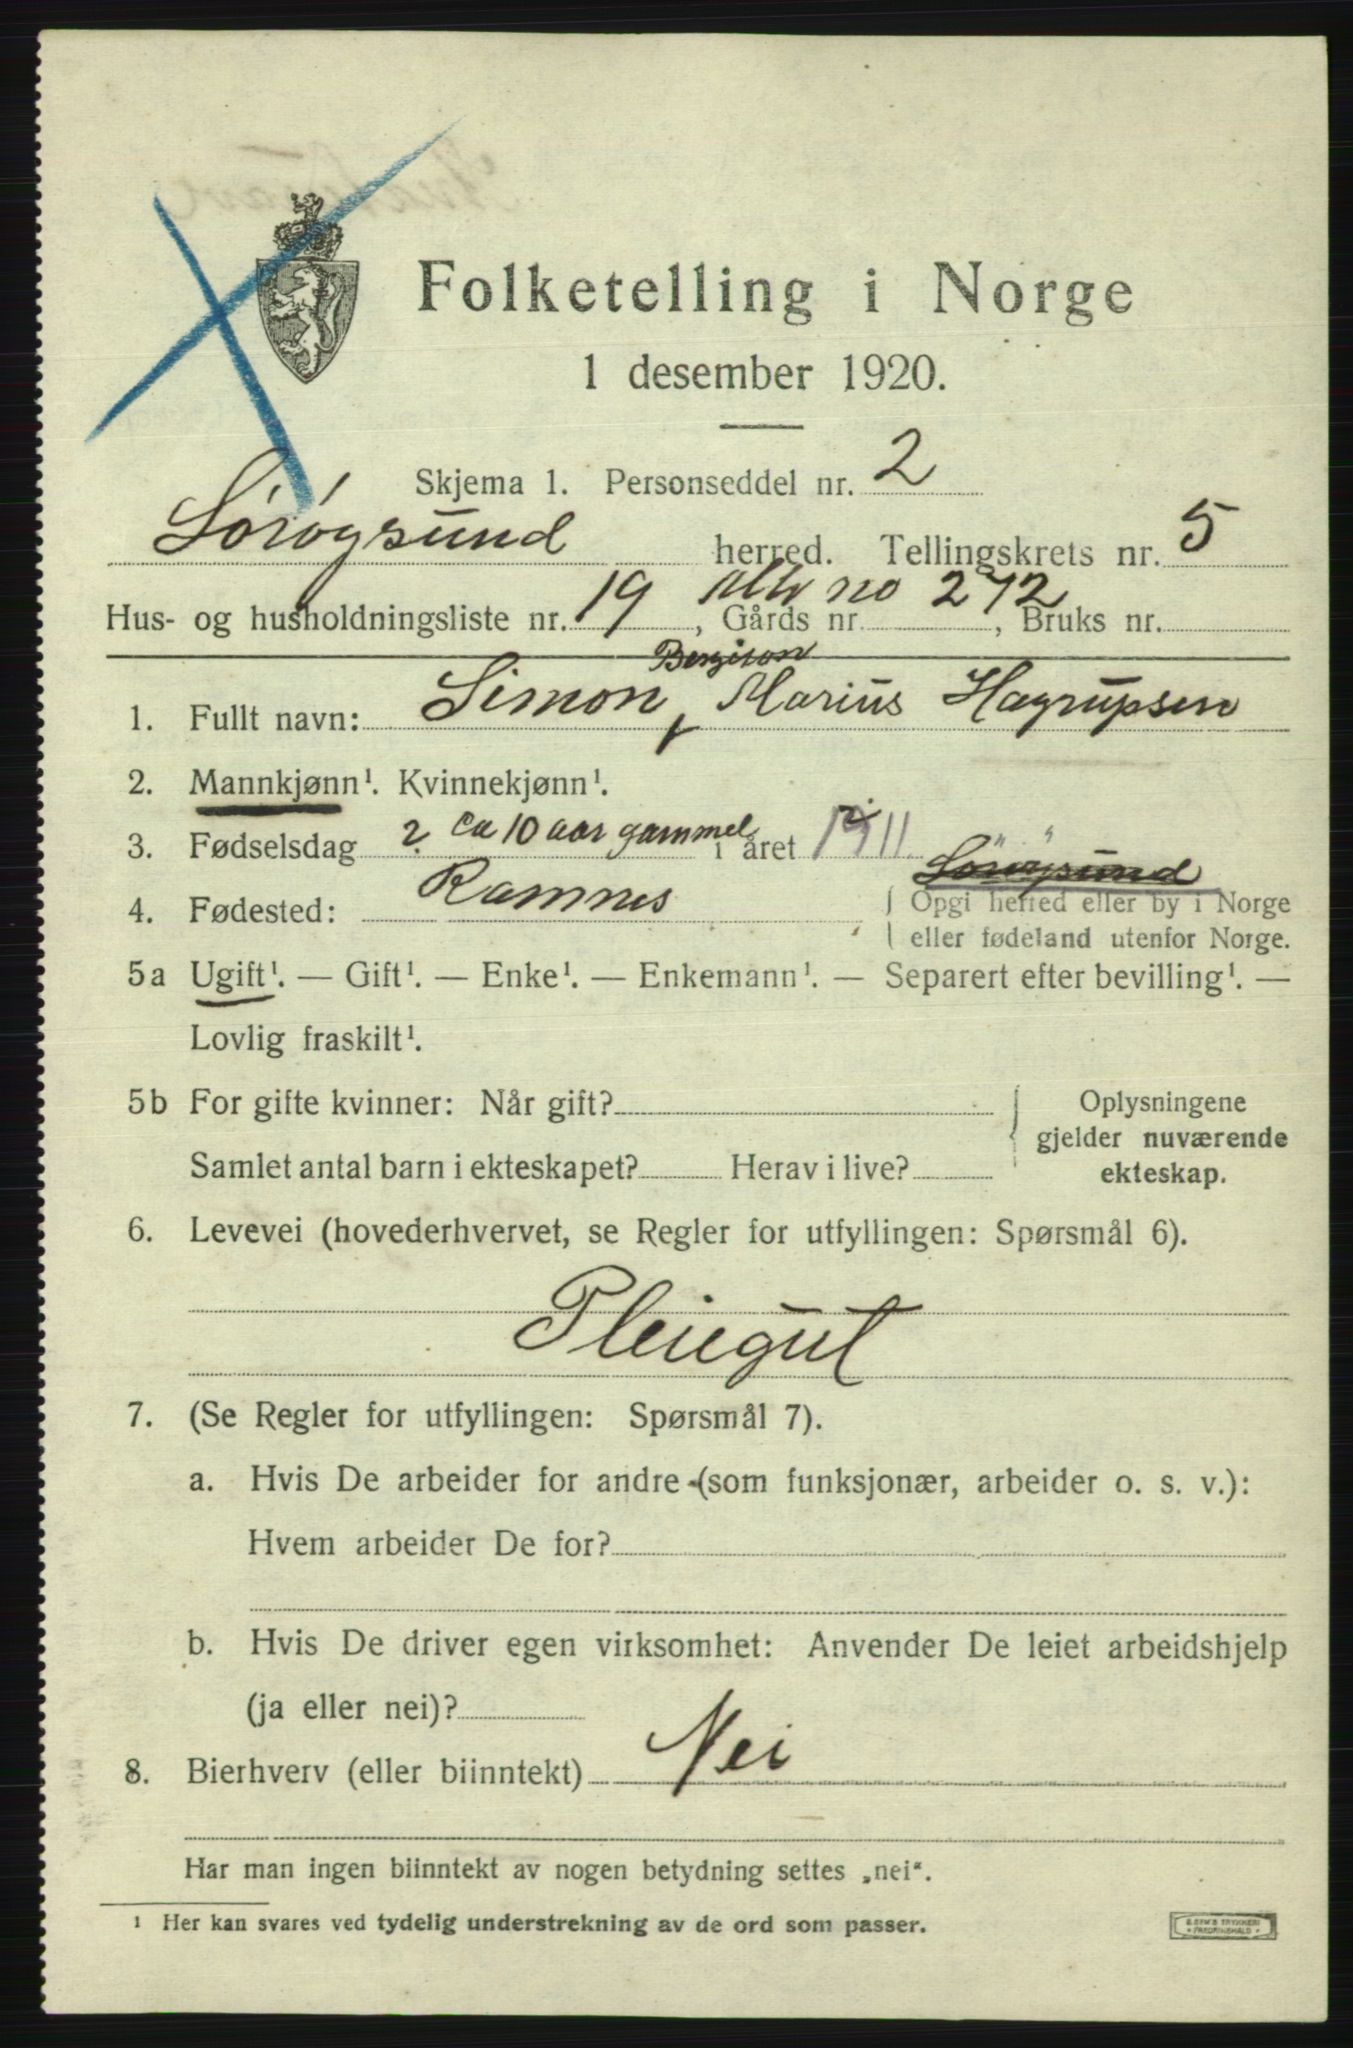 Folketelling i Norge
1 desember 1920.
Skjema 1. Personseddel nr. 2
Sørøysund herred. Tellingskrets nr. 5
Hus- og husholdningsliste nr. 19, Gårds nr. no 272, Bruks nr.
Bergiton
1. Fullt navn: Simon, Marius Hagrupsen
2. Mannkjønn¹. Kvinnekjønn¹.
3. Fødselsdag ? ca 10 aar gammel i året 1911
4. Fødested: Ramnes Sørøysund { Opgi herred eller by i Norge
eller fødeland utenfor Norge.
5a Ugift¹. — Gift¹. — Enke¹. — Enkemann¹. — Separert efter bevilling¹. —
Lovlig fraskilt¹.
5b For gifte kvinner: Når gift? { Oplysningene
gjelder nuværende
Samlet antal barn i ekteskapet? Herav i live? ekteskap.
6. Levevei (hovederhvervet, se Regler for utfyllingen: Spørsmål 6).
Pleiegut
7. (Se Regler for utfyllingen: Spørsmål 7).
a. Hvis De arbeider for andre (som funksjonær, arbeider o. s. v.):
Hvem arbeider De for?
b. Hvis De driver egen virksomhet: Anvender De leiet arbeidshjelp
(ja eller nei)?
8. Bierhverv (eller biinntekt) Nei
Har man ingen biinntekt av nogen betydning settes „nei“.
¹ Her kan svares ved tydelig understrekning av de ord som passer.